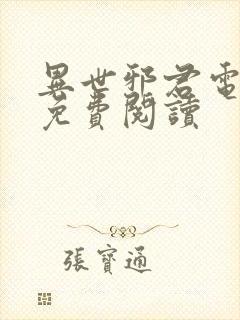 異世邪君電
免費閱讀
張寶通